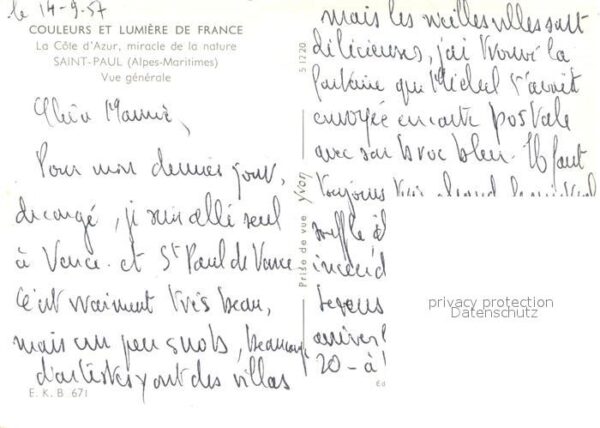 le 14-9-57
COULEURS ET LUMIÈRE DE FRANCE
La Côte d'Azur, miracle de la nature
SAINT-PAUL (Alpes-Maritimes)
Vue générale
Chère Mamie,
Pour mon dernier jour,
de congé, je suis allé seul
à Vence et St Paul de Vence
C'est vraiment très beau,
mais un peu snobs, beaucoup
d'artistes y ont des villas
E. K. B 671
51220
Prise de vue yvon
mais les vieilles villes sont
délicieuses, j'ai trouvé la
fontaine que Michel t'avait
envoyée en carte postale
avec son broc bleu. Il faut
toujours
souffle
incend
serons
arriver
20 - à
Ed
privacy protection
Datenschutz